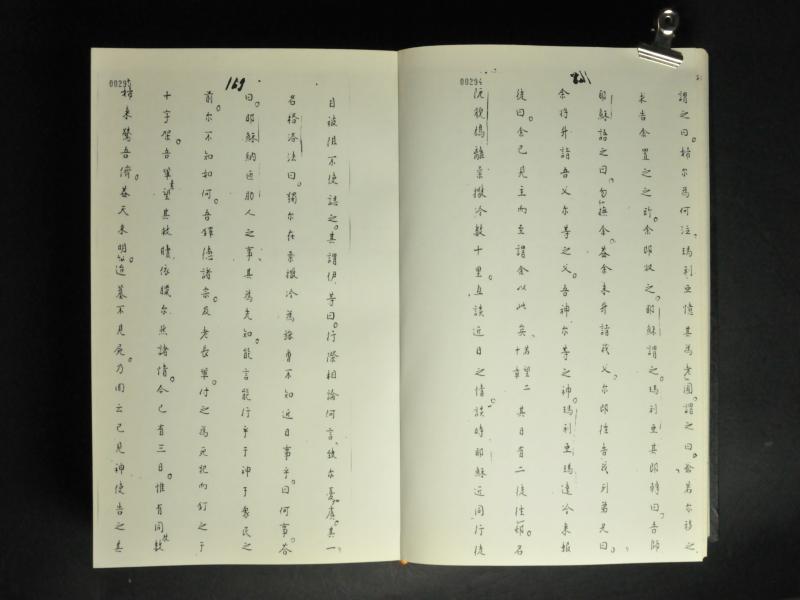 00294
謂之曰。柹尔為何泣。瑪利亞憶其為老圃。謂之曰。若尔移之
求告余置之之所。余即取之。耶穌謂之。瑪利亞其即轉曰。吾師
耶穌語之曰。勿撫余。盖余未升詣我父。尔即往吾列弟兄曰。
余将升詣吾父尔等之父。吾神尔等之神。瑪利亞瑪達冷来報
徒曰。余已見主而至謂余以此矣。若望二十章 其日有二徒往一邨名
阨貌鄔離柔撒冷数十里。且談近日之情。談時耶穌近同行。徒
00295
169
目被阻不使誌之。其謂伊等曰。行際相論何言。致尔憂慮。其一
名格洛法曰。獨尔在柔撒冷為旅曹不知近日事乎。曰何事。答
曰。耶穌納匝肋人之事。其為先知。能言能行乎于神于衆民之
前。尔不知如何。吾鐸德諸宗。及老長輩。付之為死犯而釘之于
十字架。吾輩望其救贖依臘尔。然諸情。今已有三日。惟有同教
柹来驚吾儕。盖天未明。迨墓不見屍。乃回云已見神使告之其